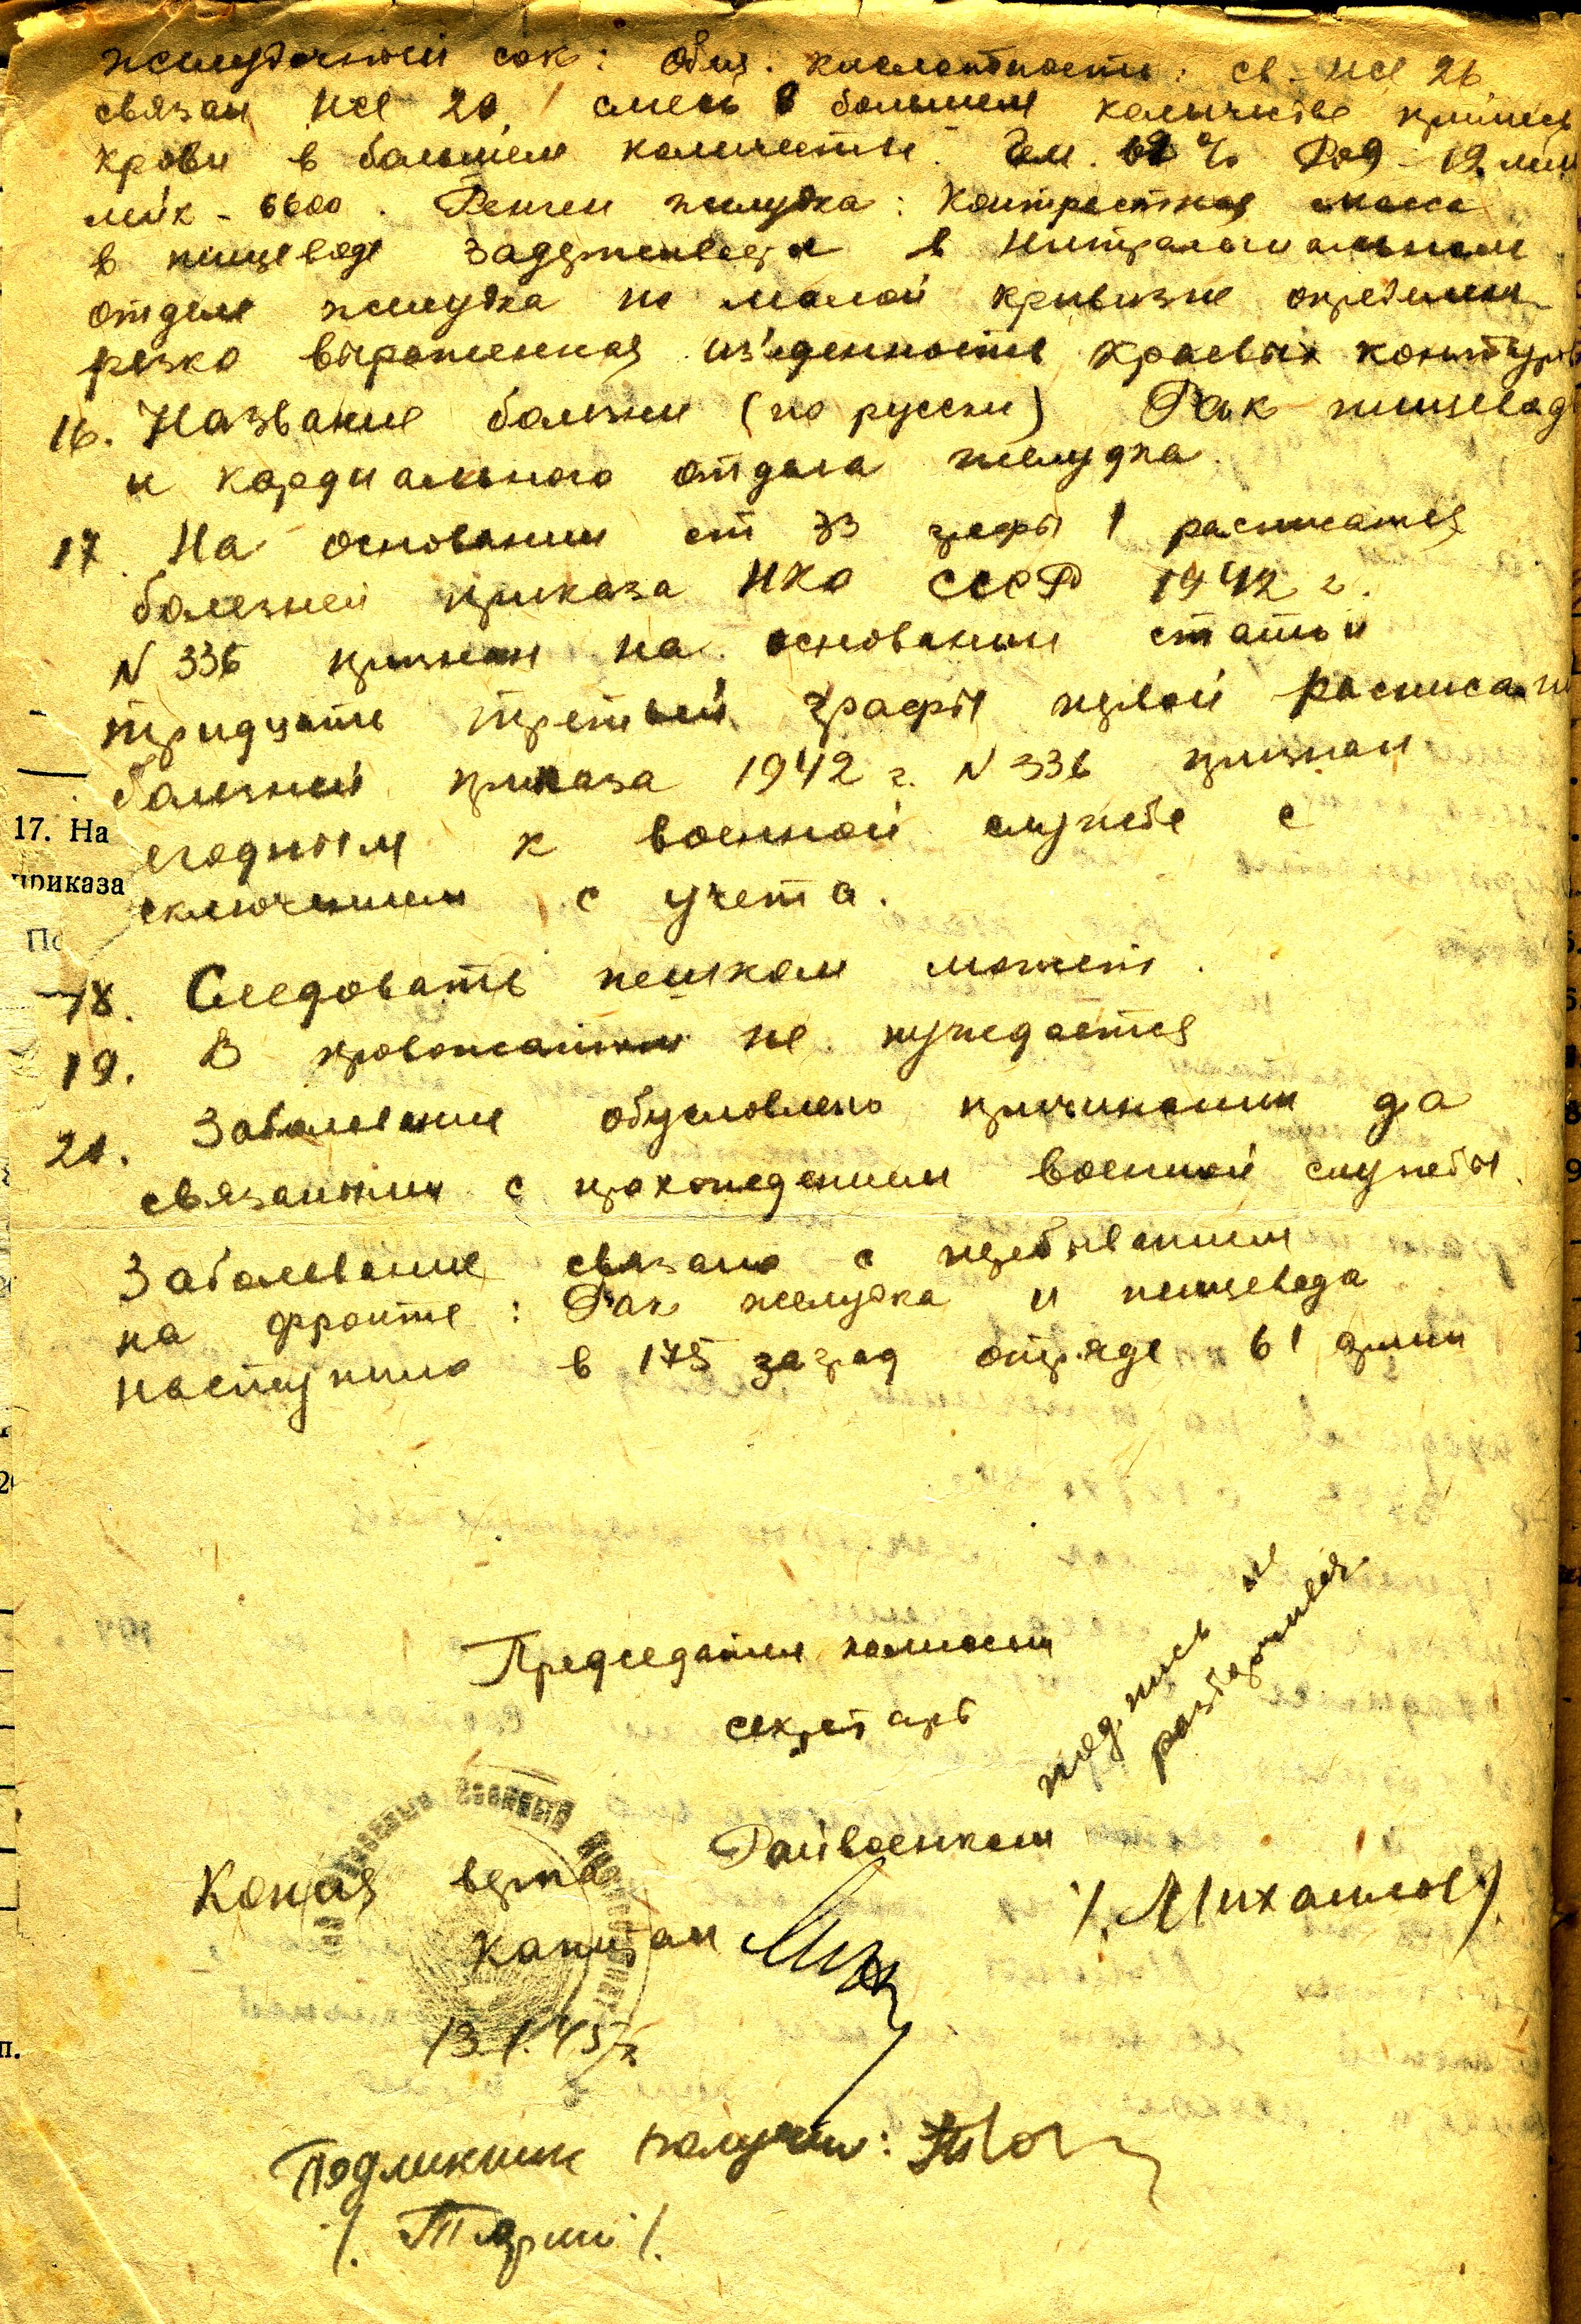 желудочный сок: общ. кислотность: св. HCl 26
связан HCl 20, в большом количестве примесь
крови в большом количестве. Гем. 62% РОЭ - 12 мм
лейк - 6600. Рентген желудка: Контрастная масса
в пищеводе задерживается в
отделе желудка по малой кривизне определяет
резко выраженная из'еденность краевых контуров
16. Название болезни (по русски) Рак пищевод
и кардиального отдела желудка.
17. На основании ст 33 графы 1 расписания
болезней приказа НКО СССР 1942 г.
N 336 признан на основании статьи
тридцать третьей графы первой расписани
болезней приказа 1942 г. N 336 признан
17. На
егодным к военной службе с
приказа
сключением с учета.
По
18. Следовать пешком может.
19. В провожатом не нуждается
20. Заболевание обусловлено причинами да
связанными с прохождением военной службы.
Заболевание связано с пребыванием
на фронте: Рак желудка и пищевода
наступило в 175 заград отряде 61 армии
Председатель комиссии
секретарь
подпись не
разборчивая
Райвоенком
Копия верна
капитан /Михайлов/
13/I.45 г.
Подлинник получил:
/Тярин/.
п.